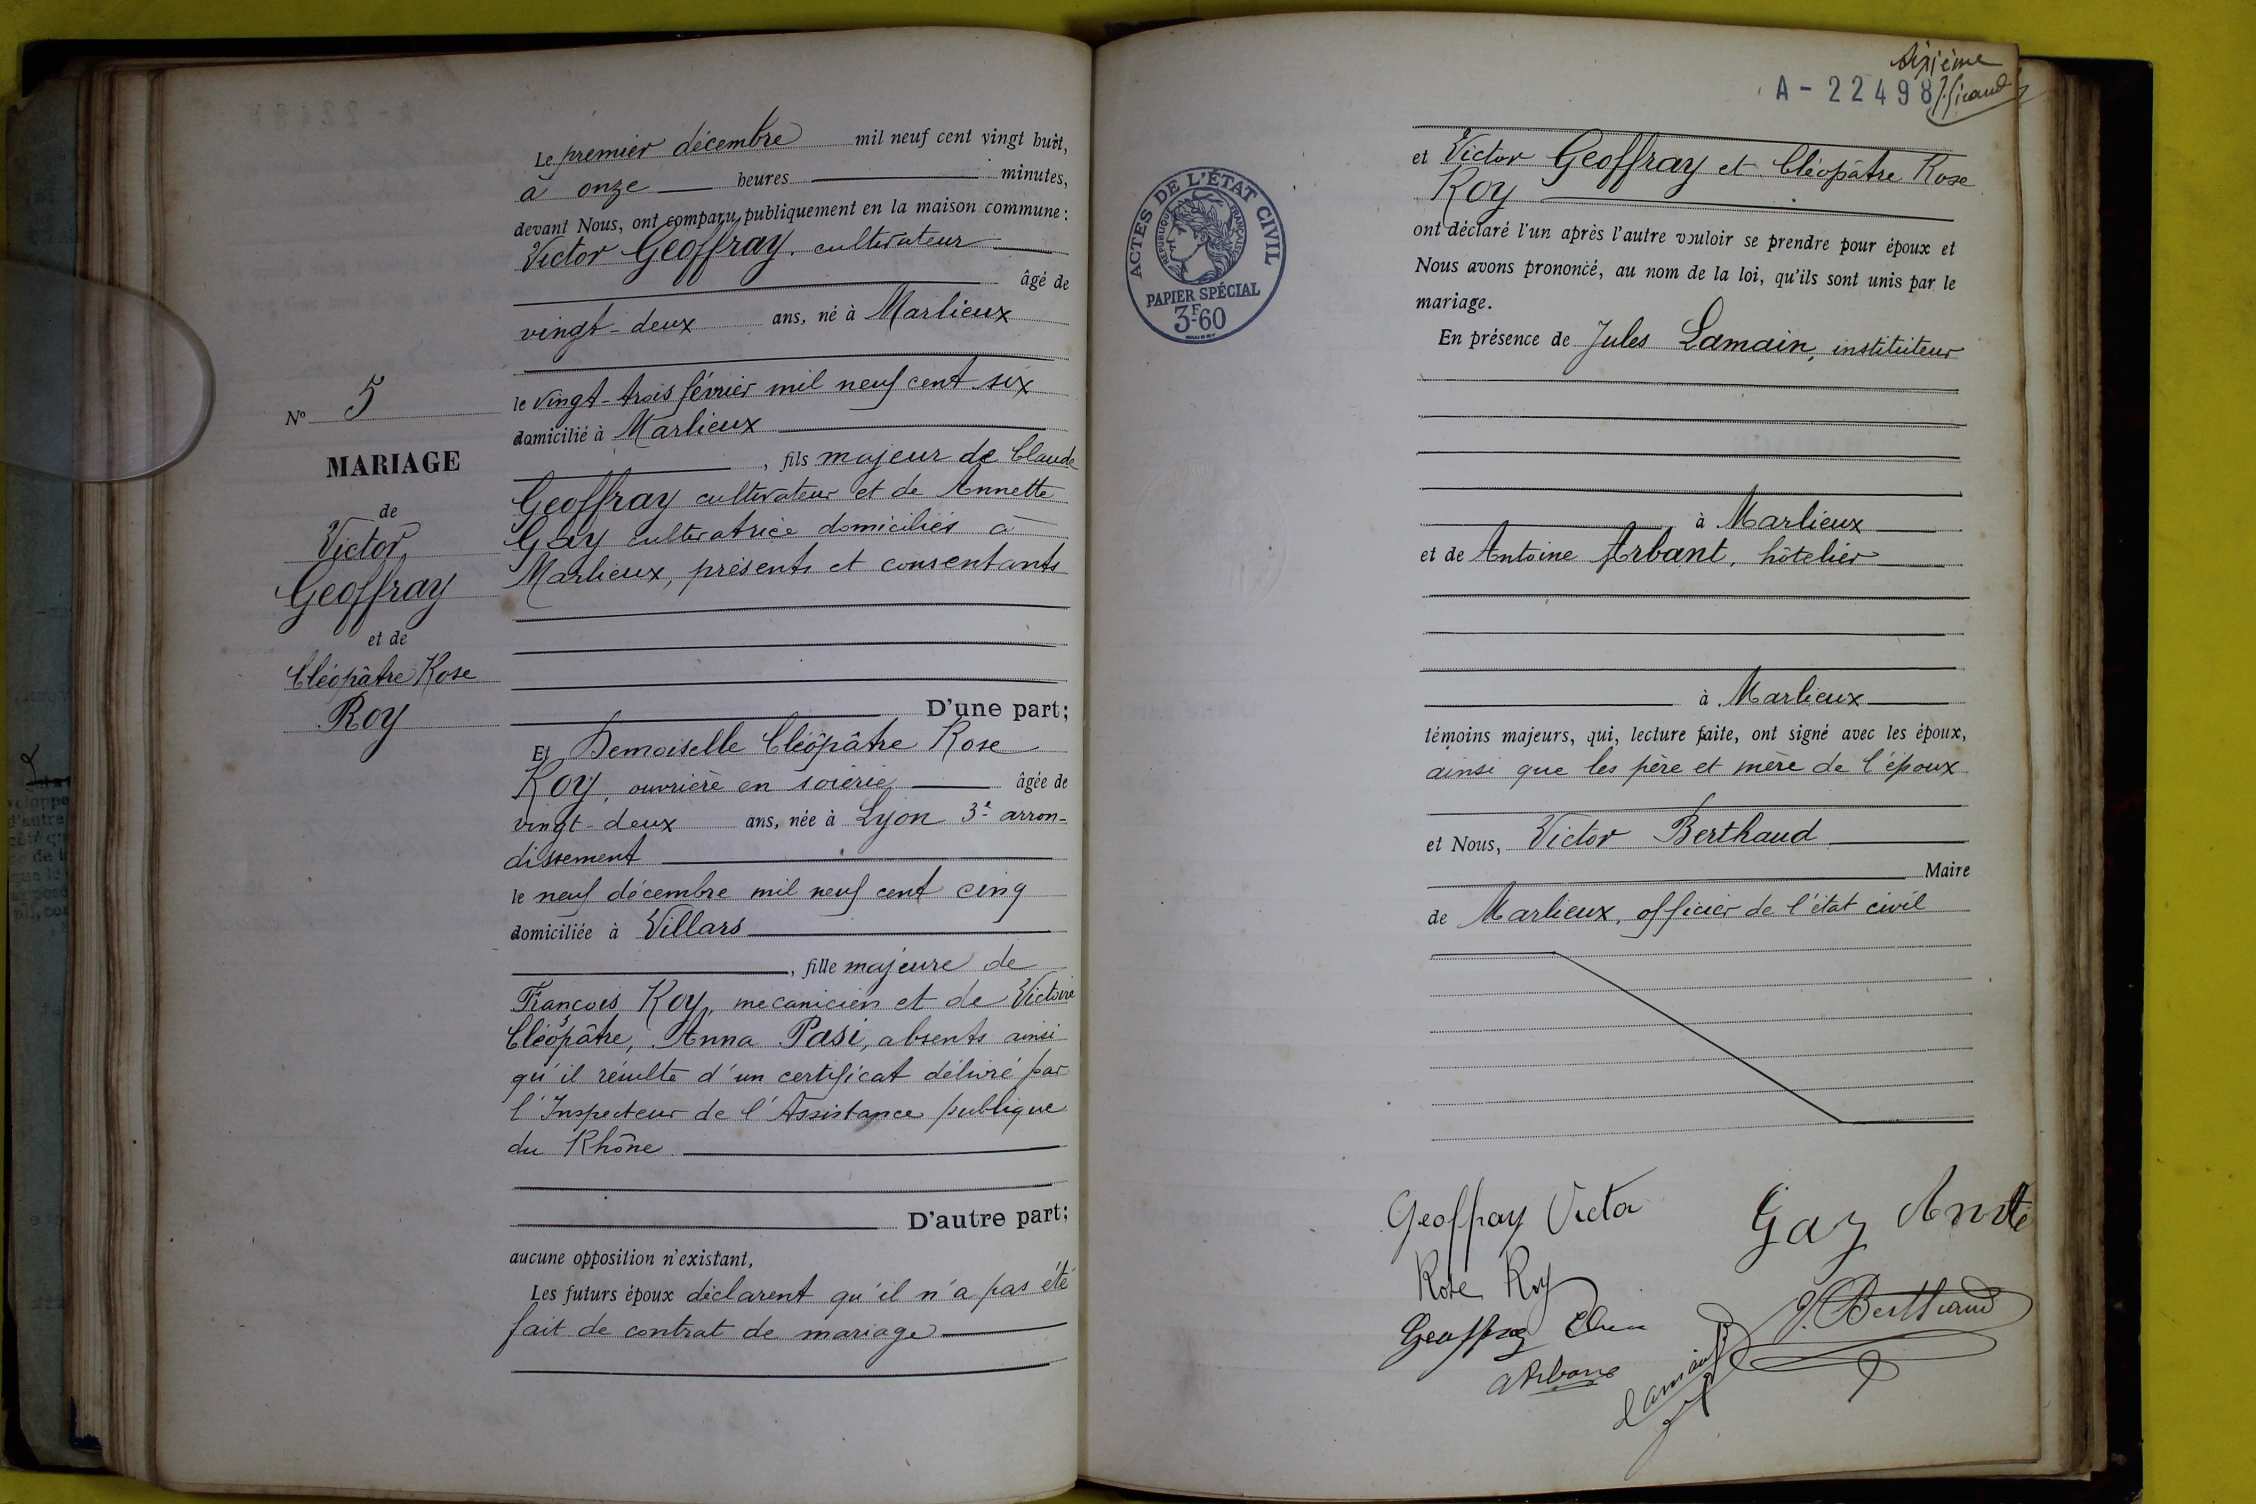 Le premier décembre mil neuf cent vingt huit,
à onze heures minutes,
devant Nous, ont comparu publiquement en la maison commune :
Victor Geoffray, cultivateur
âgé de
vingt-deux ans, né à Marlieux
le vingt-trois février mil neuf cent six
domicilié à Marlieux
, fils majeur de Claude
Geoffray cultivateur et de Annette
Gay cultivatrice domiciliés à
Marlieux, présents et consentants
D'une part;
Et Demoiselle Cléopâtre Rose
Roy, ouvrière en soierie âgée de
vingt-deux ans, née à Lyon 3e arron-
dissement
le neuf décembre mil neuf cent cinq
domiciliée à Villars
, fille majeure de
François Roy, mecanicien et de Victoire
Cléopâtre, Anna Pasi, absents ainsi
qu'il résulte d'un certificat délivré par
l'Inspecteur de l'Assistance publique
du Rhône
D'autre part;
aucune opposition n'existant,
Les futurs époux déclarent qu'il n'a pas été
fait de contrat de mariage
No 5
MARIAGE
de
Victor
Geoffray
et de
Cléopâtre Rose
Roy
Sixième
A-22498
ACTES DE L'ÉTAT CIVIL
RÉPUBLIQUE FRANÇAISE
PAPIER SPÉCIAL
3F60
et Victor Geoffray et Cléopâtre Rose
Roy
ont déclaré l'un après l'autre vouloir se prendre pour époux et
Nous avons prononcé, au nom de la loi, qu'ils sont unis par le
mariage.
En présence de Jules Lamain, instituteur
à Marlieux
et de Antoine Arbant, hôtelier
à Marlieux
témoins majeurs, qui, lecture faite, ont signé avec les époux,
ainsi que les père et mère de l'époux
et Nous, Victor Berthaud
Maire
de Marlieux, officier de l'état civil
Geoffray Victor
Gay
Rose Roy
V. Berthaud
Geoffray
Lamain